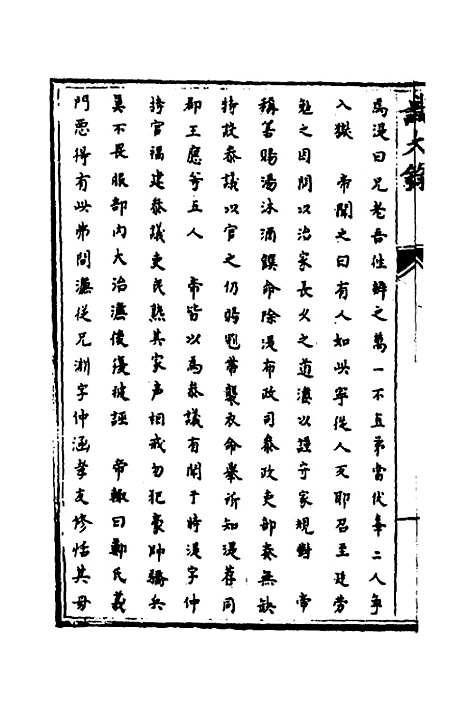 為湜曰兄老吾往辨之萬一不直弟當伏辜二人爭
入獄　帝聞之曰有人如此寧從人反耶召至廷勞
勉之因問以治家長久之道濂以謹守家規對　帝
稱善賜湯沐酒饌命除湜布政司參政吏部奏無缺
特設參議以官之仍賜冠帶襲衣命舉所知湜荐同
郡王應等五人　帝皆以為參議有聞于時湜字仲
持官福建參議吏民熟其家声相戒勿犯豪帥驕兵
莫不畏服部內大治濂後復被誣　帝輒曰鄭氏義
門惡得有此弗問濂從兄淵字仲涵孝友修恬其母